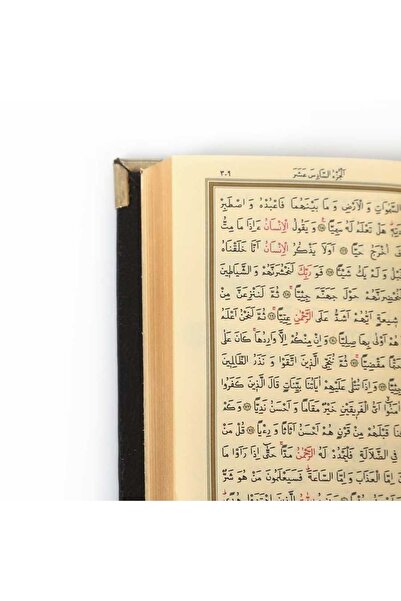 ٣٠٩ اَلْجُزْءُ السَّادِسَ عَشَرَ
السَّمٰوَاتِ وَالْاَرْضِ وَمَا بَيْنَهُمَا فَاعْبُدْهُ وَاصْطَبِرْ
هَلْ تَعْلَمُ لَهُ سَمِيًّا ۝ وَيَقُولُ الْاِنْسَانُ ءَاِذَا مَا مِتُّ
اُخْرَجُ حَيًّا ۝ اَوَلَا يَذْكُرُ الْاِنْسَانُ اَنَّا خَلَقْنَاهُ
وَلَمْ يَكُ شَيْـًٔا ۝ فَوَرَبِّكَ لَنَحْشُرَنَّهُمْ وَالشَّيَاطِينَ
حَوْلَ جَهَنَّمَ جِثِيًّا ۝ ثُمَّ لَنَنْزِعَنَّ مِنْ
شِيعَةٍ اَيُّهُمْ اَشَدُّ عَلَى الرَّحْمٰنِ عِتِيًّا ۝ ثُمَّ لَنَحْنُ اَعْلَمُ
هُمْ اَوْلٰى بِهَا صِلِيًّا ۝ وَاِنْ مِنْكُمْ اِلَّا وَارِدُهَا كَانَ عَلٰى
حَتْمًا مَقْضِيًّا ۝ ثُمَّ نُنَجِّي الَّذِينَ اتَّقَوْا وَنَذَرُ الظَّالِمِينَ
وَاِذَا تُتْلٰى عَلَيْهِمْ اٰيَاتُنَا بَيِّنَاتٍ قَالَ الَّذِينَ كَفَرُوا
اٰمَنُوا اَيُّ الْفَرِيقَيْنِ خَيْرٌ مَقَامًا وَاَحْسَنُ نَدِيًّا ۝ وَكَمْ
قَبْلَهُمْ مِنْ قَرْنٍ هُمْ اَحْسَنُ اَثَاثًا وَرِءْيًا ۝ قُلْ مَنْ
فِي الضَّلَالَةِ فَلْيَمْدُدْ لَهُ الرَّحْمٰنُ مَدًّا حَتّٰى اِذَا رَاَوْا مَا
اِمَّا الْعَذَابَ وَاِمَّا السَّاعَةَ فَسَيَعْلَمُونَ مَنْ هُوَ شَرٌّ